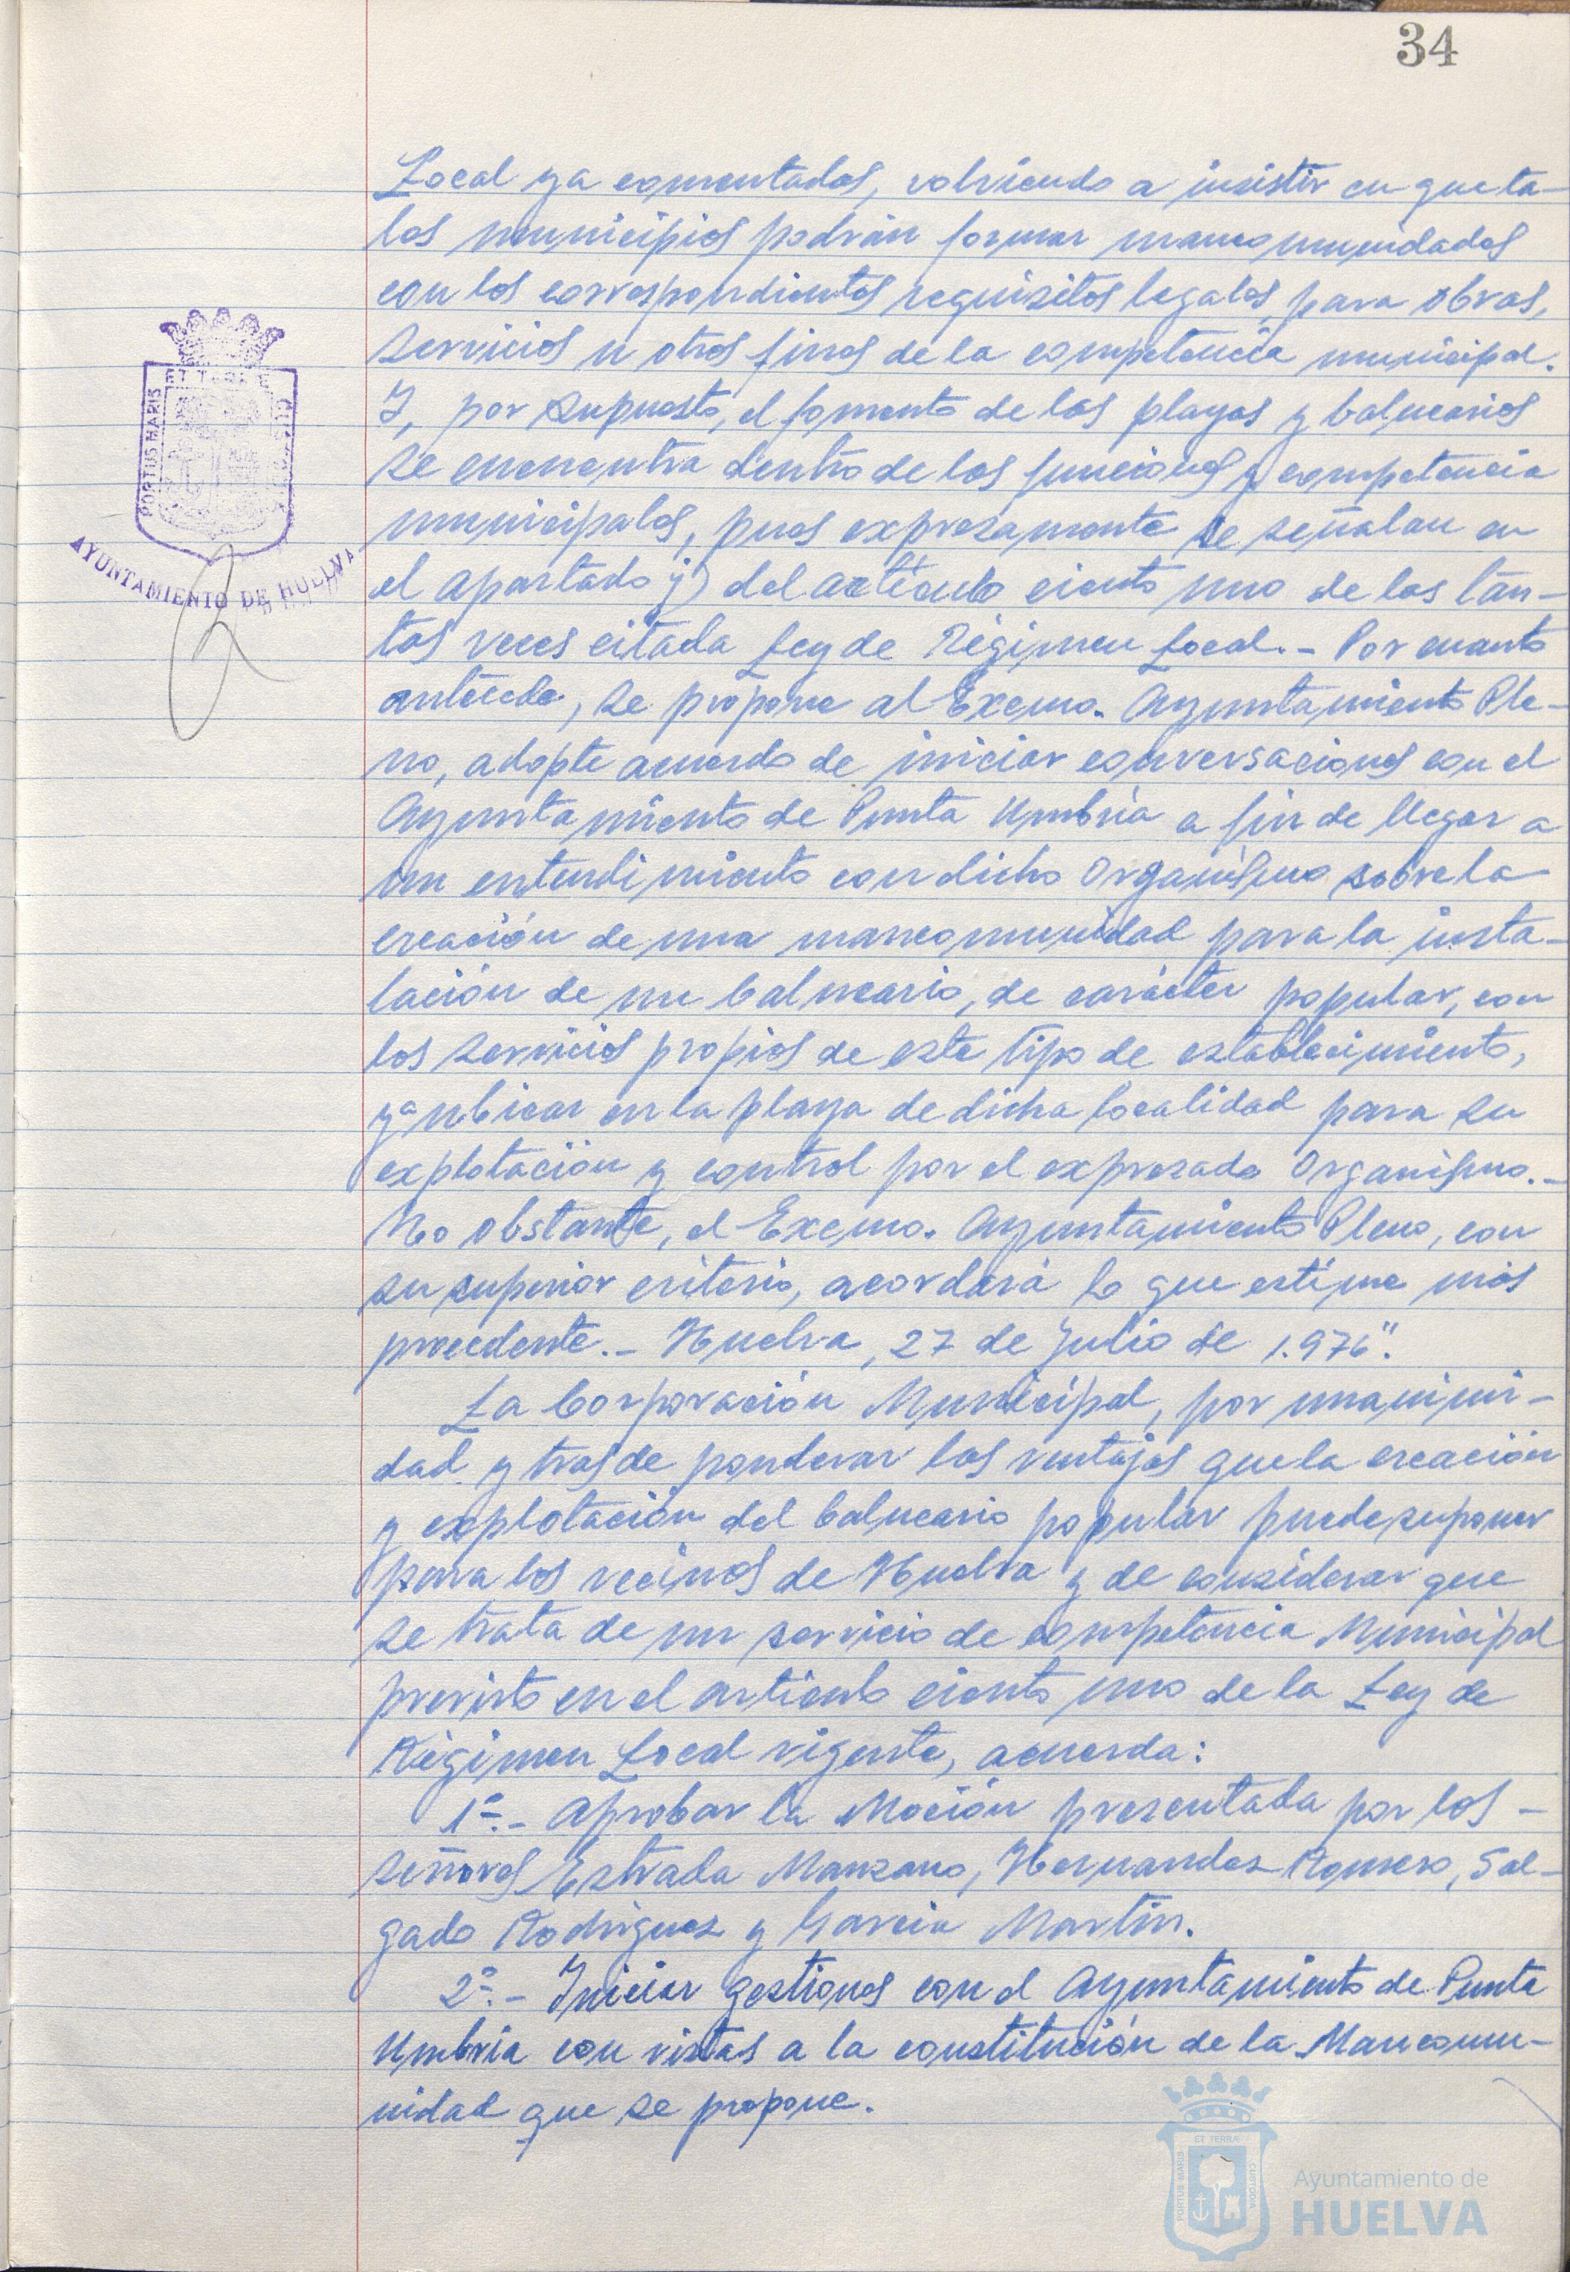 34
Local ya comentados, volviendo a insistir en que ta-
les municipios podrán formar mancomunidades
con los correspondientes requisitos legales, para obras,
servicios u otros fines de la competencia municipal.
Y, por supuesto, el fomento de las playas y balnearios
se encuentra dentro de las funciones y competencia
municipales, pues expresamente se señalan en
el apartado j) del artículo ciento uno de las tan-
tas veces citada Ley de Régimen Local.- Por cuanto
antecede, se propone al Excmo. Ayuntamiento Ple-
no, adopte acuerdo de iniciar conversaciones con el
Ayuntamiento de Punta Umbría a fin de llegar a
un entendimiento con dicho Organismo sobre la
creación de una mancomunidad para la insta-
lación de un balneario, de carácter popular, con
los servicios propios de este tipo de establecimiento,
y a ubicar en la playa de dicha localidad para su
explotación y control por el expresado Organismo.-
No obstante, el Excmo. Ayuntamiento Pleno, con
su superior criterio, acordará lo que estime más
procedente.- Huelva, 27 de Julio de 1.976".
La Corporación Municipal, por unanimi-
dad y tras de ponderar las ventajas que la creación
y explotación del balneario popular puede suponer
para los vecinos de Huelva y de considerar que
se trata de un servicio de competencia Municipal
previsto en el artículo ciento uno de la Ley de
Régimen Local vigente, acuerda:
1º.- Aprobar la Moción presentada por los -
señores Estrada Manzano, Hernandez Romero, Sal-
gado Rodriguez y Garcia Martín.
2º.- Iniciar gestiones con el Ayuntamiento de Punta
Umbría con vistas a la constitución de la Mancomu-
nidad que se propone.
PORTUS MARIS
ET TERRAE
CUSTODIA
AYUNTAMIENTO DE HUELVA
PORTUS MARIS
ET TERRAE
CUSTODIA
Ayuntamiento de
HUELVA